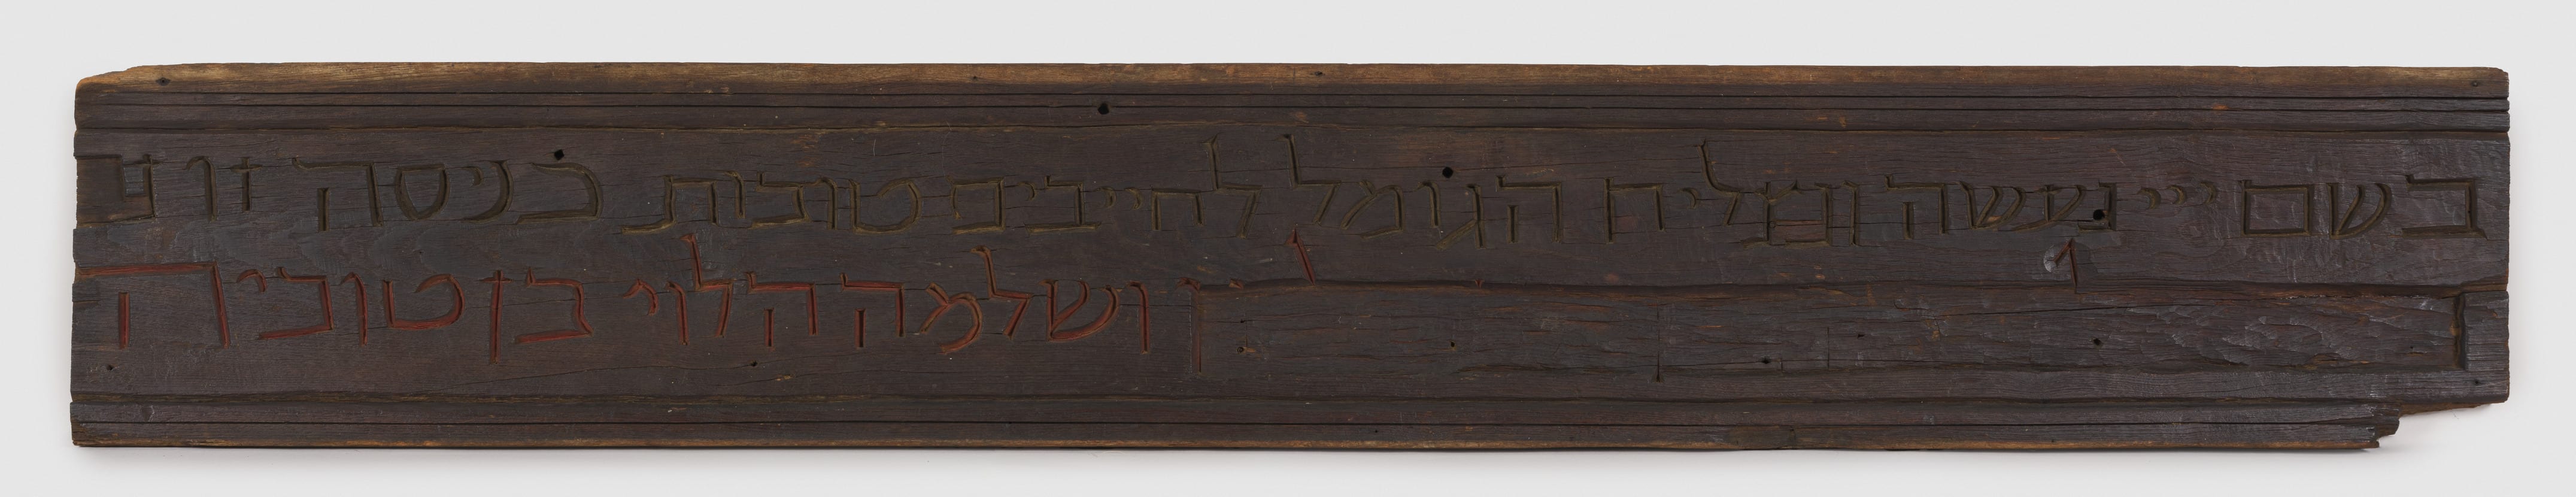 בשם ייי נעשה ונצליח הגומל לחייבים טובות כניסה זו
ושלמה הלוי בן טוביה